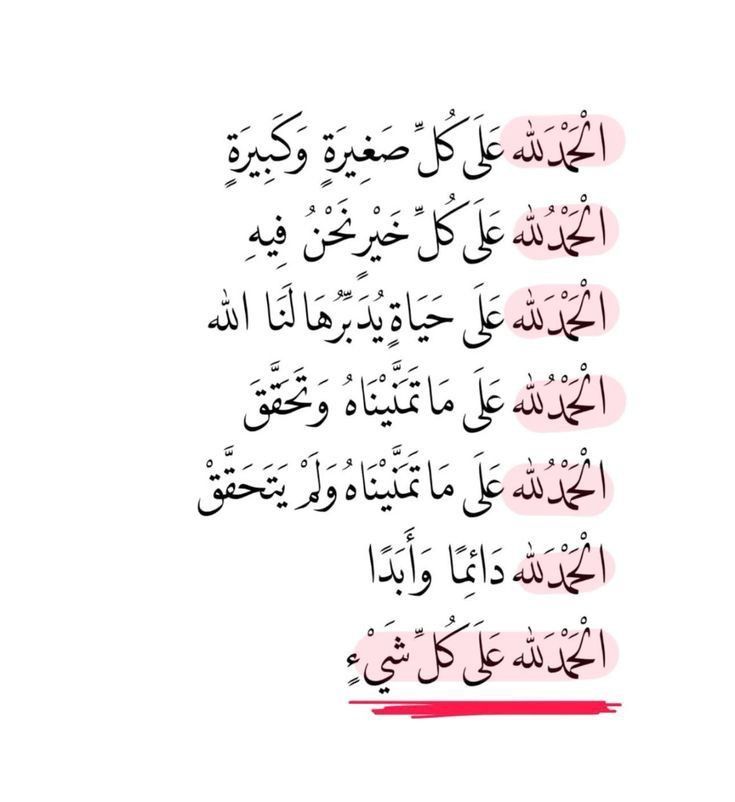 الْحَمْدَلله عَلَى كُلِّ صَغِيرَةٍ وَكَبِيرَةٍ
الْحَمْدُلله عَلَى كُلِّ خَيْرٍ نَحْنُ فِيهِ
الْحَمْدَلله عَلَى حَيَاةٍ يُدَبِّرُهَا لَنَا الله
الْحَمْدُلله عَلَى مَا تَمَنَّيْنَاهُ وَتَحَقَّقَ
الْحَمْدُلله عَلَى مَا تَمَنَّيْنَاهُ وَلَمْ يَتَحَقَّقْ
الْحَمْدَلله دَائِمًا وَأَبَدًا
الْحَمْدَلله عَلَى كُلِّ شَيْءٍ